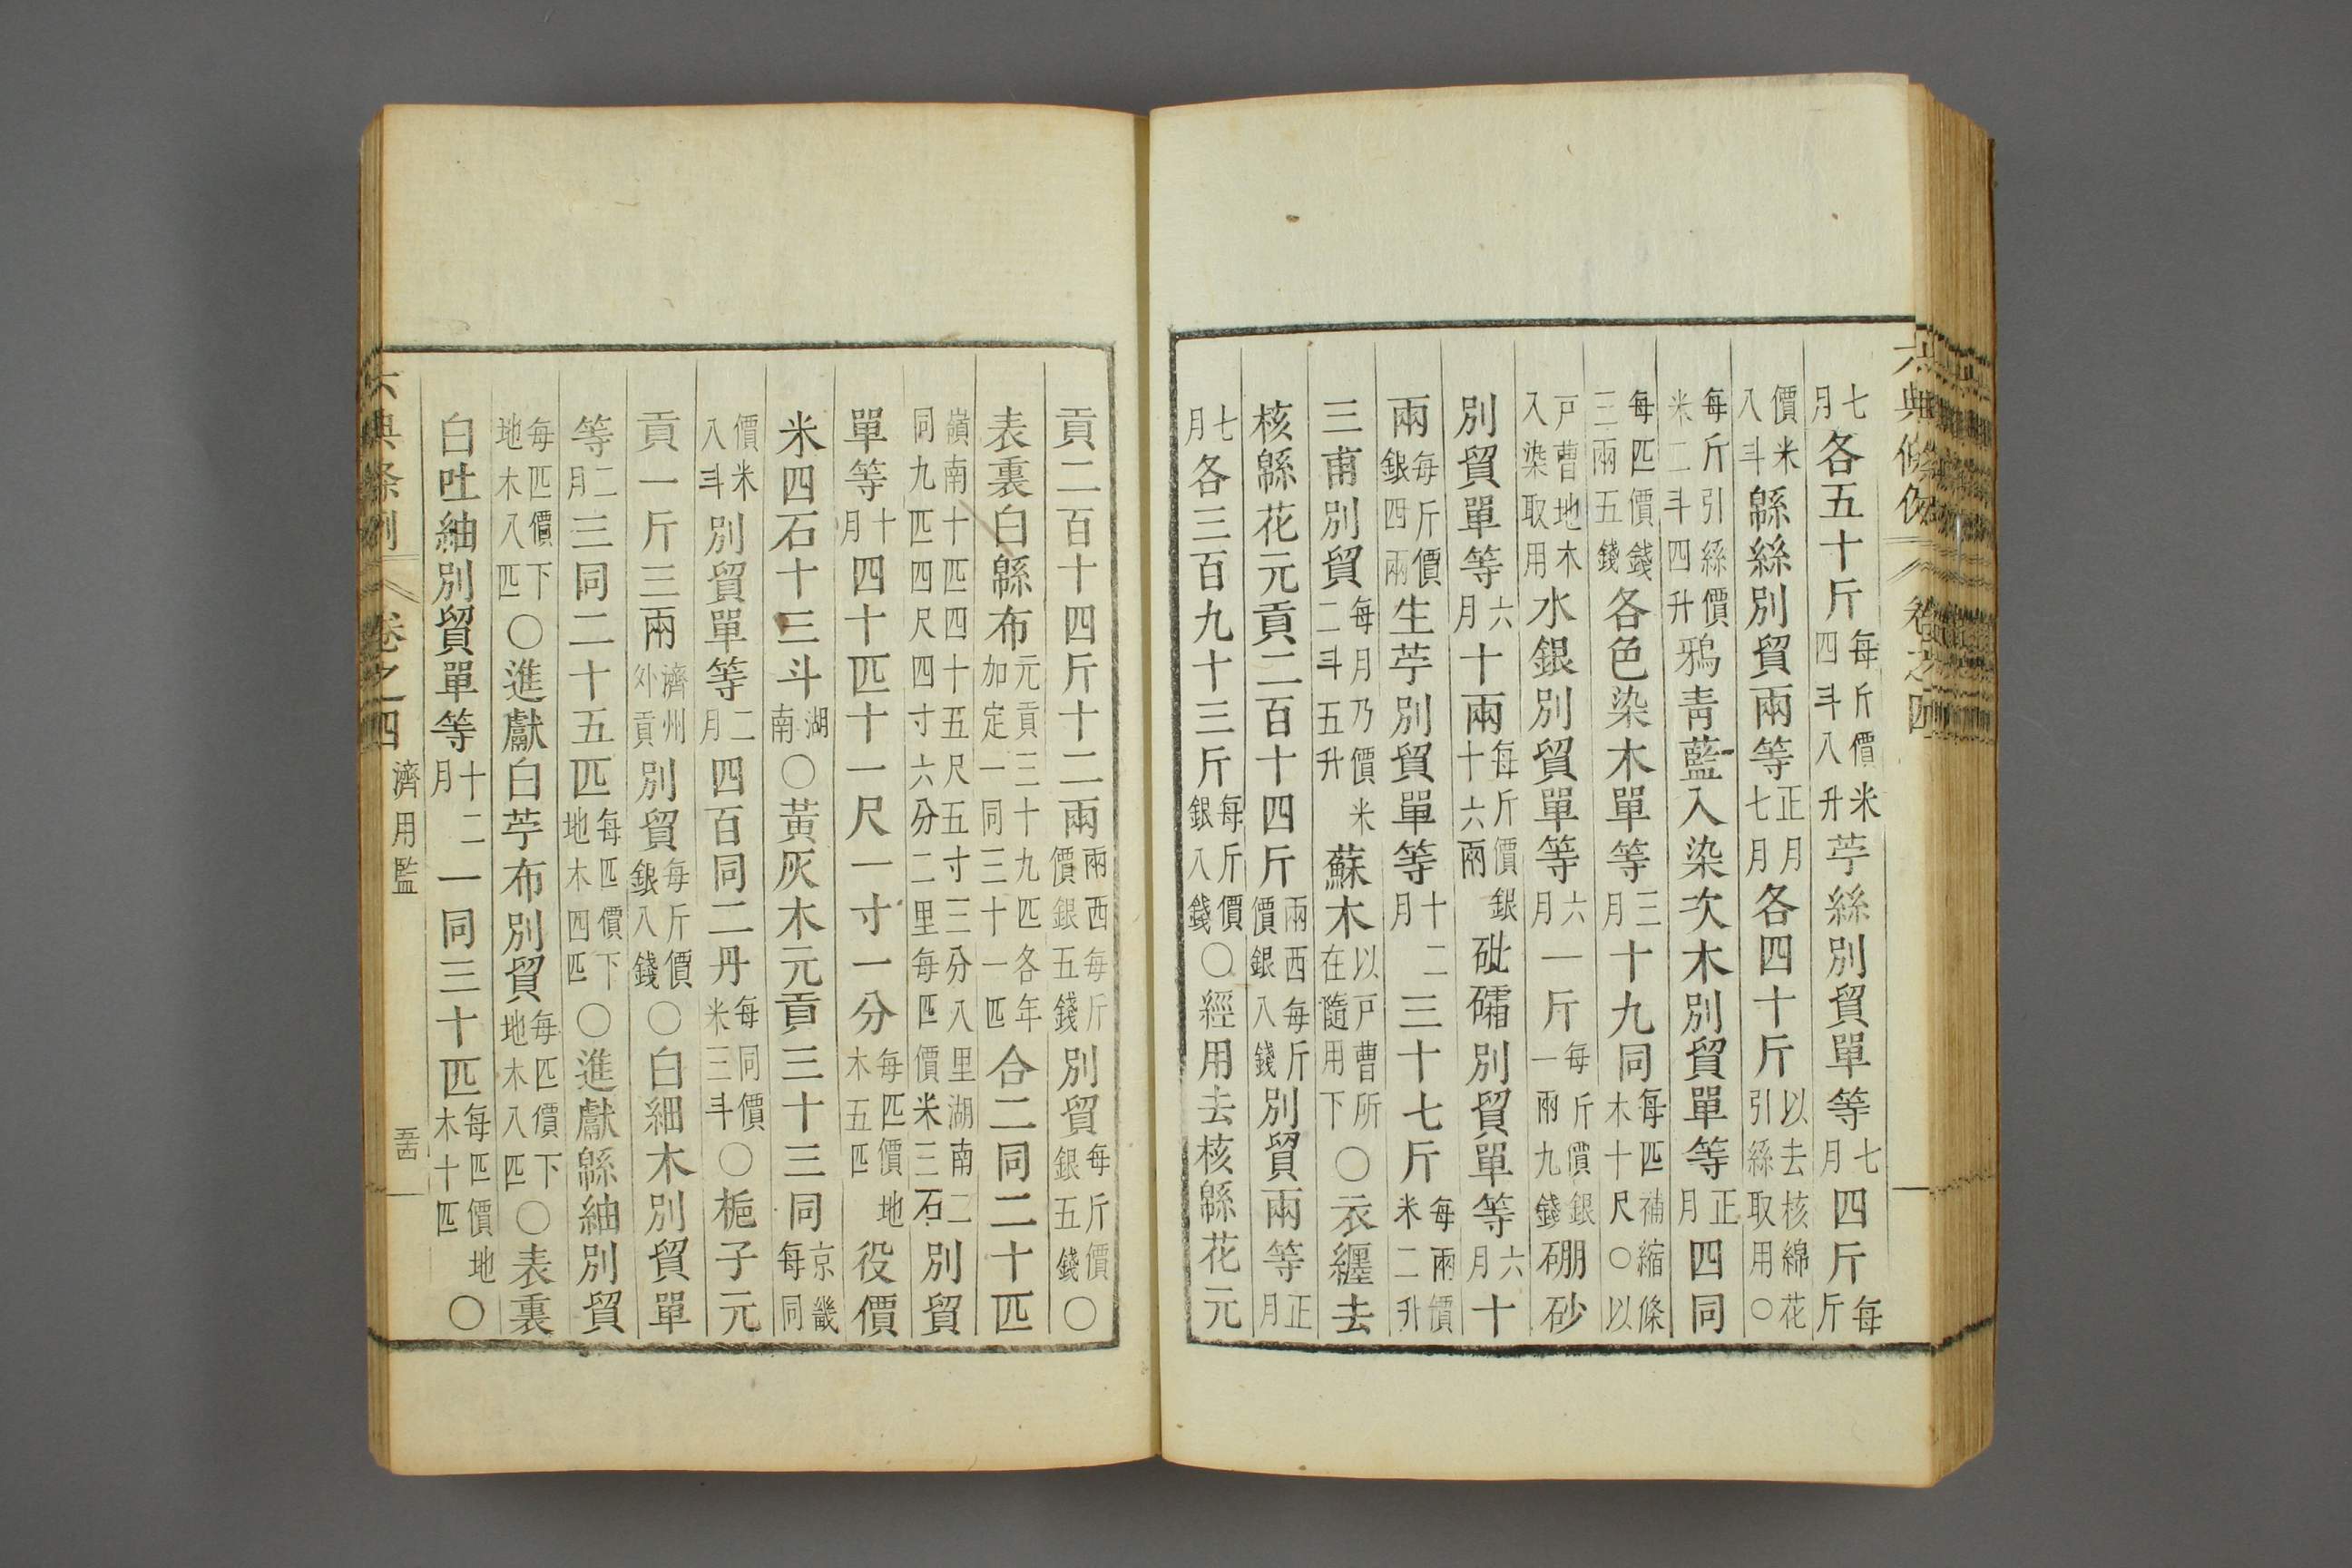 六典條例 卷之四
七月各五十斤每斤價米四斗八升苧絲別貿單等七月四斤每斤
價米八斗緜絲別貿兩等正月七月各四十斤以去核綿花引絲取用○
每斤引絲價米二斗四升鴉靑藍入染次木別貿單等正月四同
每匹價錢三兩五錢各色染木單等三月十九同每匹補縮條木十尺○以
戶曹地木入染取用水銀別貿單等六月一斤每斤價銀一兩九錢硼砂
別貿單等六月十兩每斤價銀十六兩砒礵別貿單等六月十
兩每斤價銀四兩生苧別貿單等十二月三十七斤每兩價米二升
三甫別貿每月乃價米二斗五升蘇木以戶曹所在隨用下○衣纏去
核緜花元貢二百十四斤兩西每斤價銀八錢別貿兩等正月
七月各三百九十三斤每斤價銀八錢○經用去核緜花元
貢二百十四斤十二兩兩西每斤價銀五錢別貿每斤價銀五錢○
表裏白緜布元貢三十九匹各年加定一同三十一匹合二同二十匹
嶺南十匹四十五尺五寸三分八里湖南二同九匹四尺四寸六分二里每匹價米三石別貿
單等十月四十匹十一尺一寸一分每匹價地木五匹役價
米四石十三斗湖南○黃灰木元貢三十三同京畿每同
價米八斗別貿單等二月四百同二丹每同價米三斗○梔子元
貢一斤三兩濟州外貢別貿每斤價銀八錢○白細木別貿單
等二月三同二十五匹每匹價下地木四匹○進獻緜紬別貿
每匹價下地木八匹○進獻白苧布別貿每匹價下地木八匹○表裏
白吐紬別貿單等十二月一同三十匹每匹價地木十匹○
六典條例 卷之四 濟用監